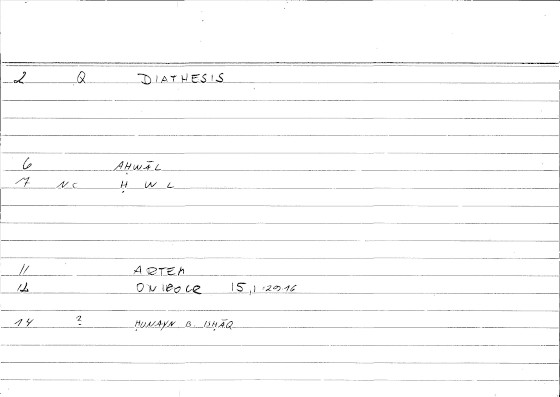 2 Q DIATHESIS
6 AḤWĀL
7 NC Ḥ W L
11 ARTEM
12 ONIROCR 15,1-2016
14 ? ḤUNAYN B. ISḤĀQ